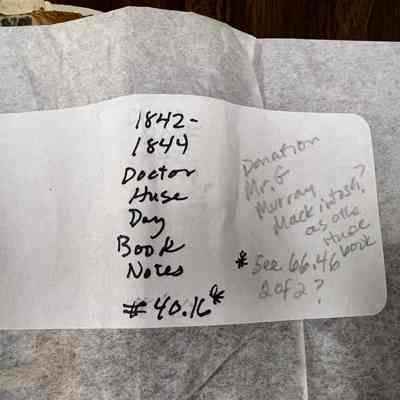 1842-
1844
Doctor
Huse
Day
Book
Notes
# 40.16*
Donation
Mr. G
Murray
Mackintosh?
as other
Huse
book
* See 66.46
2 of 2?